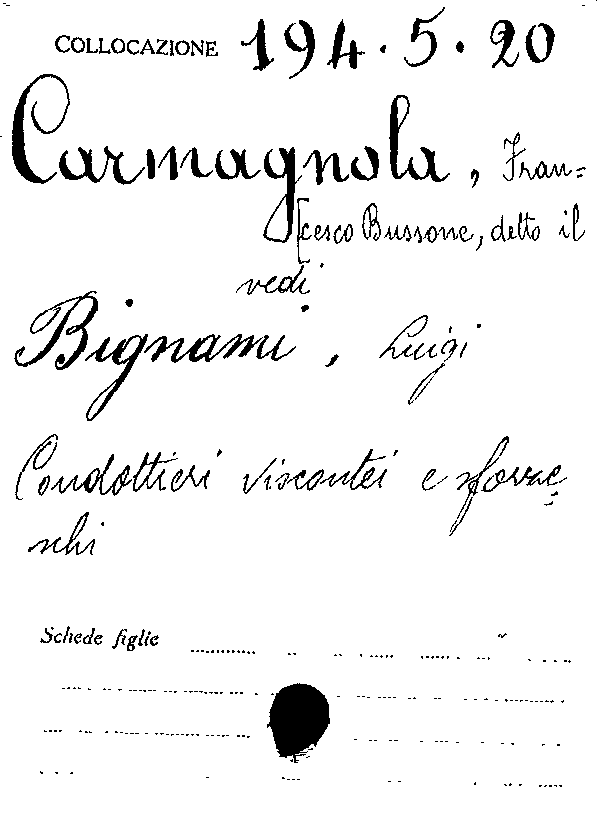 COLLOCAZIONE 194.5.20
Carmagnola, Fran=
[cesco Bussone, detto il
vedi
Bignami, Luigi
Condottieri viscontei e sforze=
schi
Schede figlie